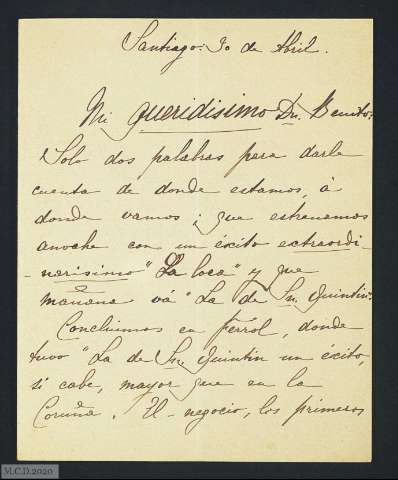 Santiago 30 de Abril.
Mi queridisimo Dn. Benito:
Solo dos palabras para darle
cuenta de donde estamos, á
donde vamos; que estrenamos
anoche con un éxito extraordi-
narisimo "La loca" y que
mañana vá "La de Sn. Quintin".
Concluimos en Ferrol, donde
tuvo "La de Sn. Quintin un éxito,
si cabe, mayor que en la
Coruña. El negocio, los primeros
M.C.D. 2020